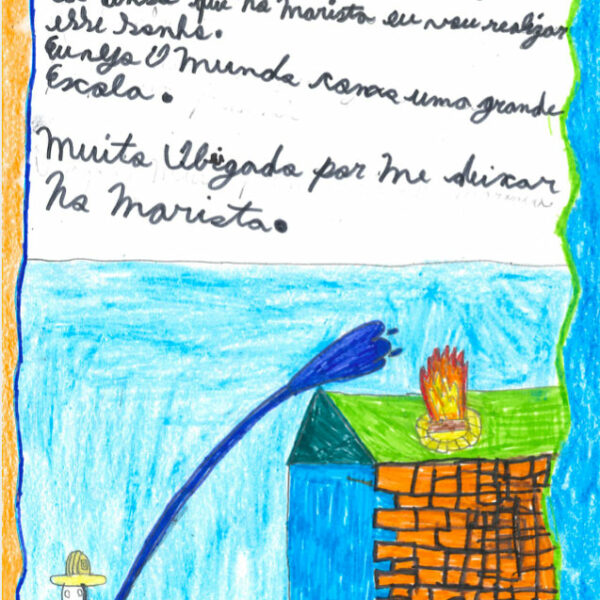 que na Marista eu vou realizar
esse sonho.
Eu vejo O Mundo como uma grande
Escola.
Muito Obrigado por me deixar
Na Marista.